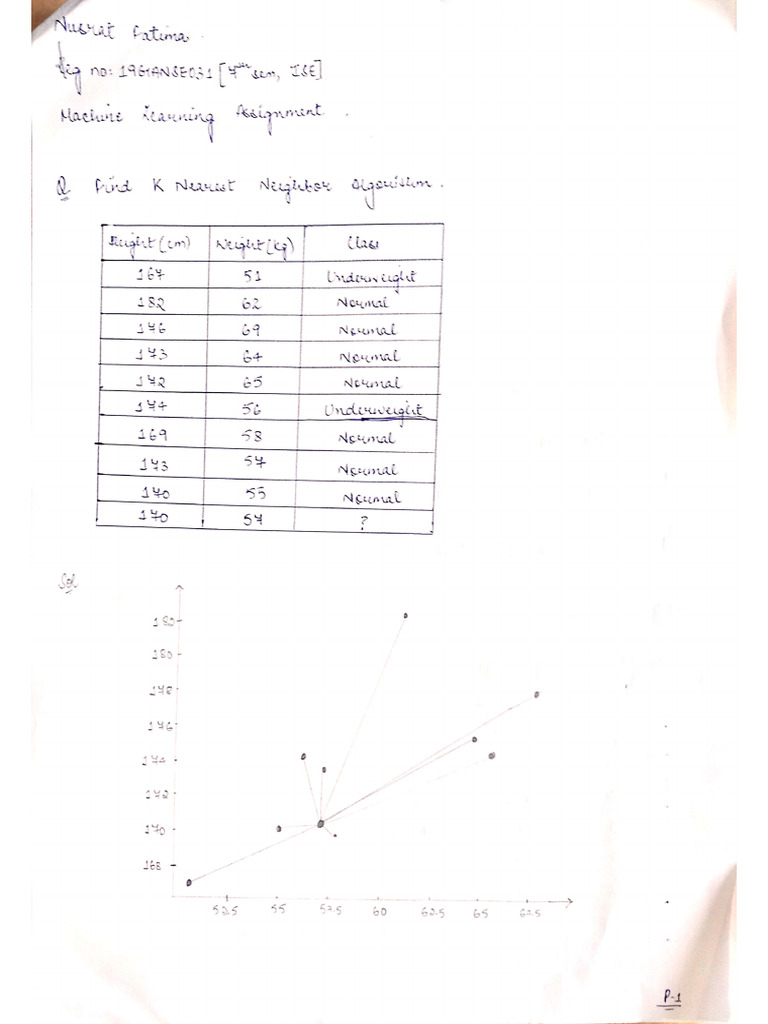 Nusrat Fatima.
Reg no: 19GANSE031 [7th sem, ISE]
Machine Learning Assignment.
Q Find K Nearest Neighbor Algorithm.
Height (cm) Weight (kg) Class
167 51 Underweight
182 62 Normal
176 69 Normal
173 64 Normal
172 65 Normal
174 56 Underweight
169 58 Normal
173 57 Normal
170 55 Normal
170 57 ?
Sol
182
180
178
176
174
172
170
168
52.5 55 57.5 60 62.5 65 67.5
P-1